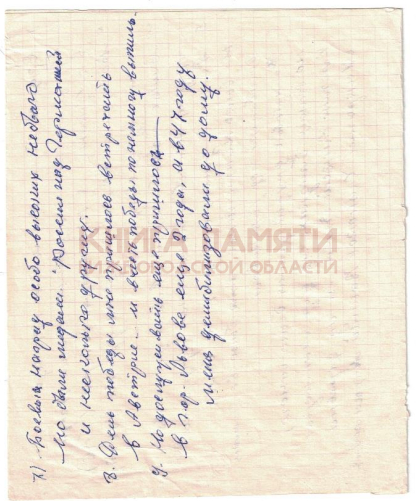 7) Боевых наград особо высоких не было
но были медали "Россия над Германией
и несколько других.
8. День победы мне пришлось встречать
в Австрие. и в честь победы понемногу выпили.
9. Но дослуживать еще пришлось
в гор. Львове еще 2 года, а в 47 году
меня демобилизовали до дому.
КНИГА ПАМЯТИ
ОБЛАСТИ